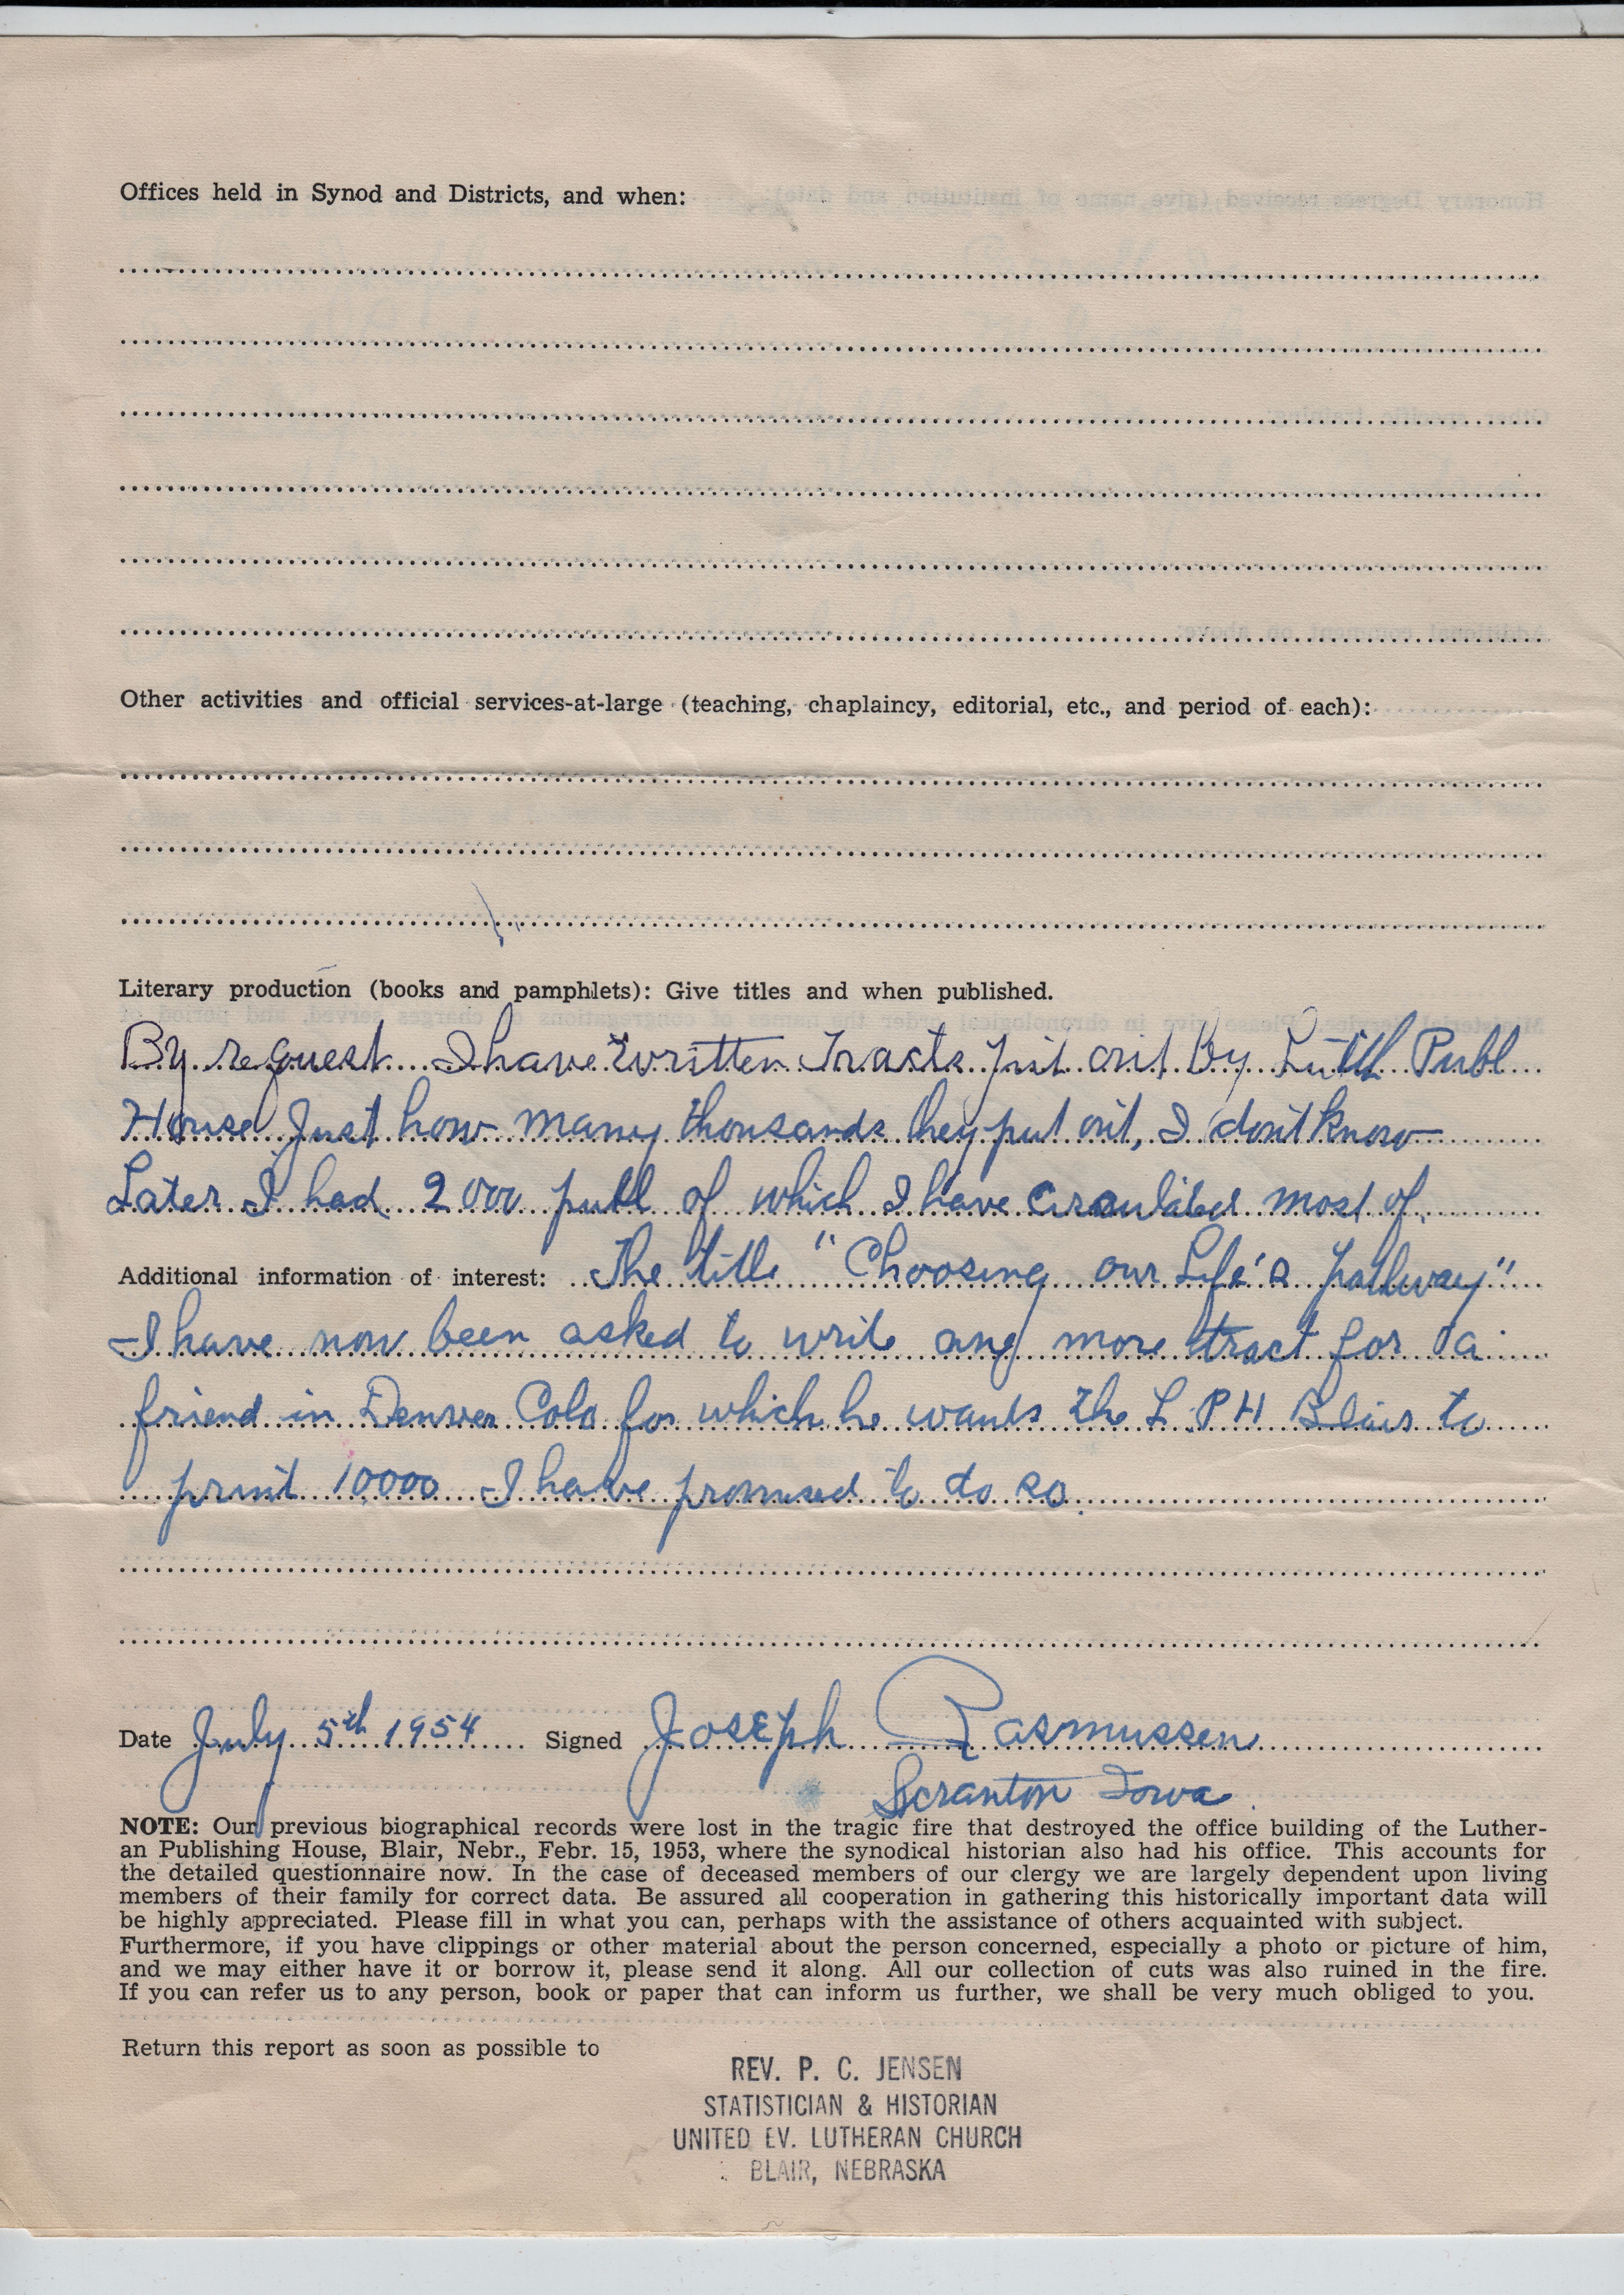 Offices held in Synod and Districts, and when:
Other activities and official services-at-large (teaching, chaplaincy, editorial, etc., and period of each):
Literary production (books and pamphlets): Give titles and when published.
By request I have written Tracts put out By Luth Publ
House Just how many thousands they put out, I don't know
Later I had 2000 publ of which I have circulated most of
Additional information of interest: The title "Choosing our Life's pathway"
I have now been asked to write one more tract for a
friend in Denver Colo for which he wants the L P H Blair to
print 10000 I have promised to do so.
Date July 5th 1954 Signed Joseph Rasmussen
Scranton Iowa
NOTE: Our previous biographical records were lost in the tragic fire that destroyed the office building of the Luther-
an Publishing House, Blair, Nebr., Febr. 15, 1953, where the synodical historian also had his office. This accounts for
the detailed questionnaire now. In the case of deceased members of our clergy we are largely dependent upon living
members of their family for correct data. Be assured all cooperation in gathering this historically important data will
be highly appreciated. Please fill in what you can, perhaps with the assistance of others acquainted with subject.
Furthermore, if you have clippings or other material about the person concerned, especially a photo or picture of him,
and we may either have it or borrow it, please send it along. All our collection of cuts was also ruined in the fire.
If you can refer us to any person, book or paper that can inform us further, we shall be very much obliged to you.
Return this report as soon as possible to
REV. P. C. JENSEN
STATISTICIAN & HISTORIAN
UNITED EV. LUTHERAN CHURCH
BLAIR, NEBRASKA